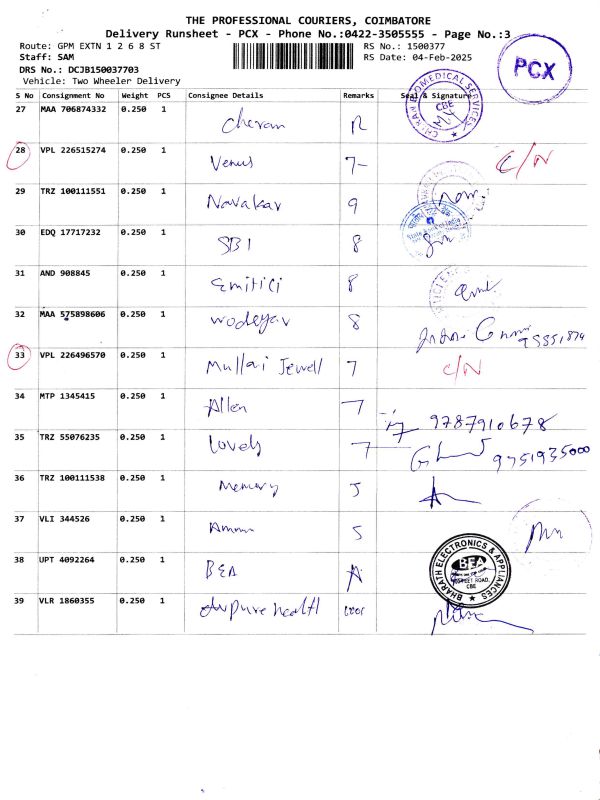 THE PROFESSIONAL COURIERS, COIMBATORE
Delivery Runsheet - PCX - Phone No.:0422-3505555 - Page No.:3
Route: GPM EXTN 1 2 6 8 ST RS No.: 1500377
Staff: SAM RS Date: 04-Feb-2025
DRS No.: DCJB150037703
Vehicle: Two Wheeler Delivery
PCX
S No Consignment No Weight PCS Consignee Details Remarks Seal & Signature
27 MAA 706874332 0.250 1 Cheran R
BIOMEDICAL SERVICES CBE
28 VPL 226515274 0.250 1 Venus 7- C/N
29 TRZ 100111551 0.250 1 Navakar 9
30 EDQ 17717232 0.250 1 SBI 8
State Bank of India
31 AND 908845 0.250 1 Emitici 8
32 MAA 575898606 0.250 1 Wodeyar 8
33 VPL 226496570 0.250 1 Mullai Jewell 7 C/N
34 MTP 1345415 0.250 1 Allen 7 9787910678
35 TRZ 55076235 0.250 1 Lovely 7 9751935000
36 TRZ 100111538 0.250 1 Memory 5
37 VLI 344526 0.250 1 Amman 5
38 UPT 4092264 0.250 1 BEA A
BHARATH ELECTRONICS & APPLIANCES BEA STREET ROAD, CBE
39 VLR 1860355 0.250 1 purehealth